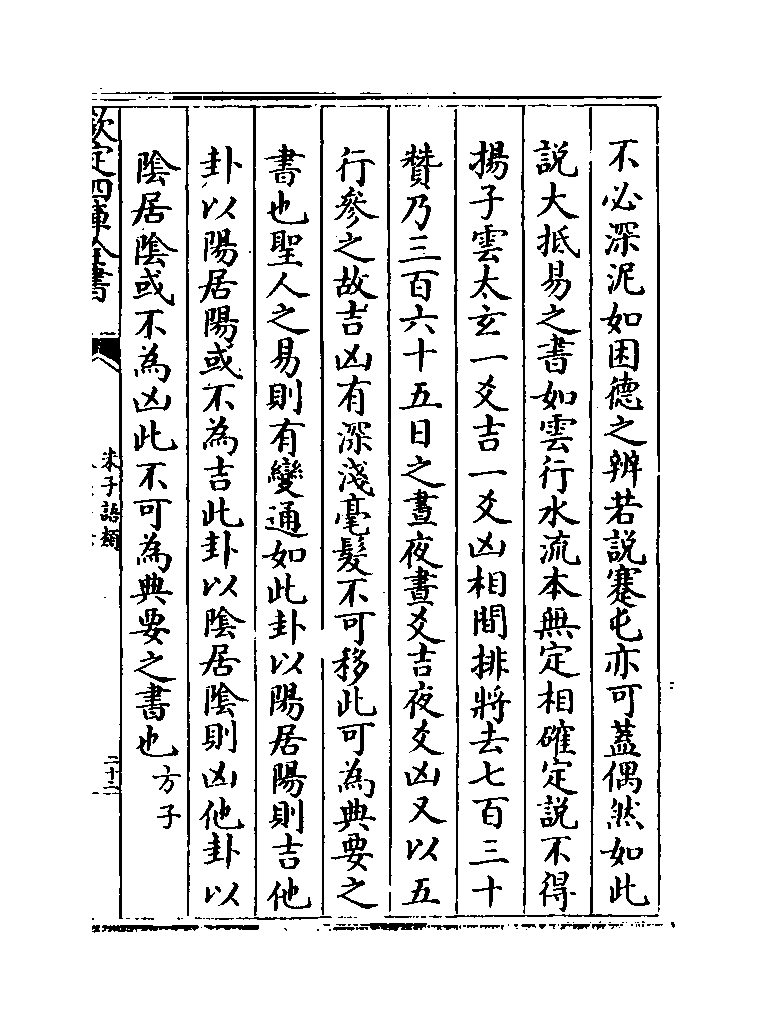 不必深泥如困德之辨若説蹇屯亦可蓋偶然如此
説大抵易之書如雲行水流本無定相確定説不得
揚子雲太玄一爻吉一爻凶相間排將去七百三十
贊乃三百六十五日之晝夜晝爻吉夜爻凶又以五
行參之故吉凶有深淺毫髮不可移此可為典要之
書也聖人之易則有變通如此卦以陽居陽則吉他
卦以陽居陽或不為吉此卦以陰居陰則凶他卦以
陰居陰或不為凶此不可為典要之書也方子
欽定四庫全書
朱子語類
二十二